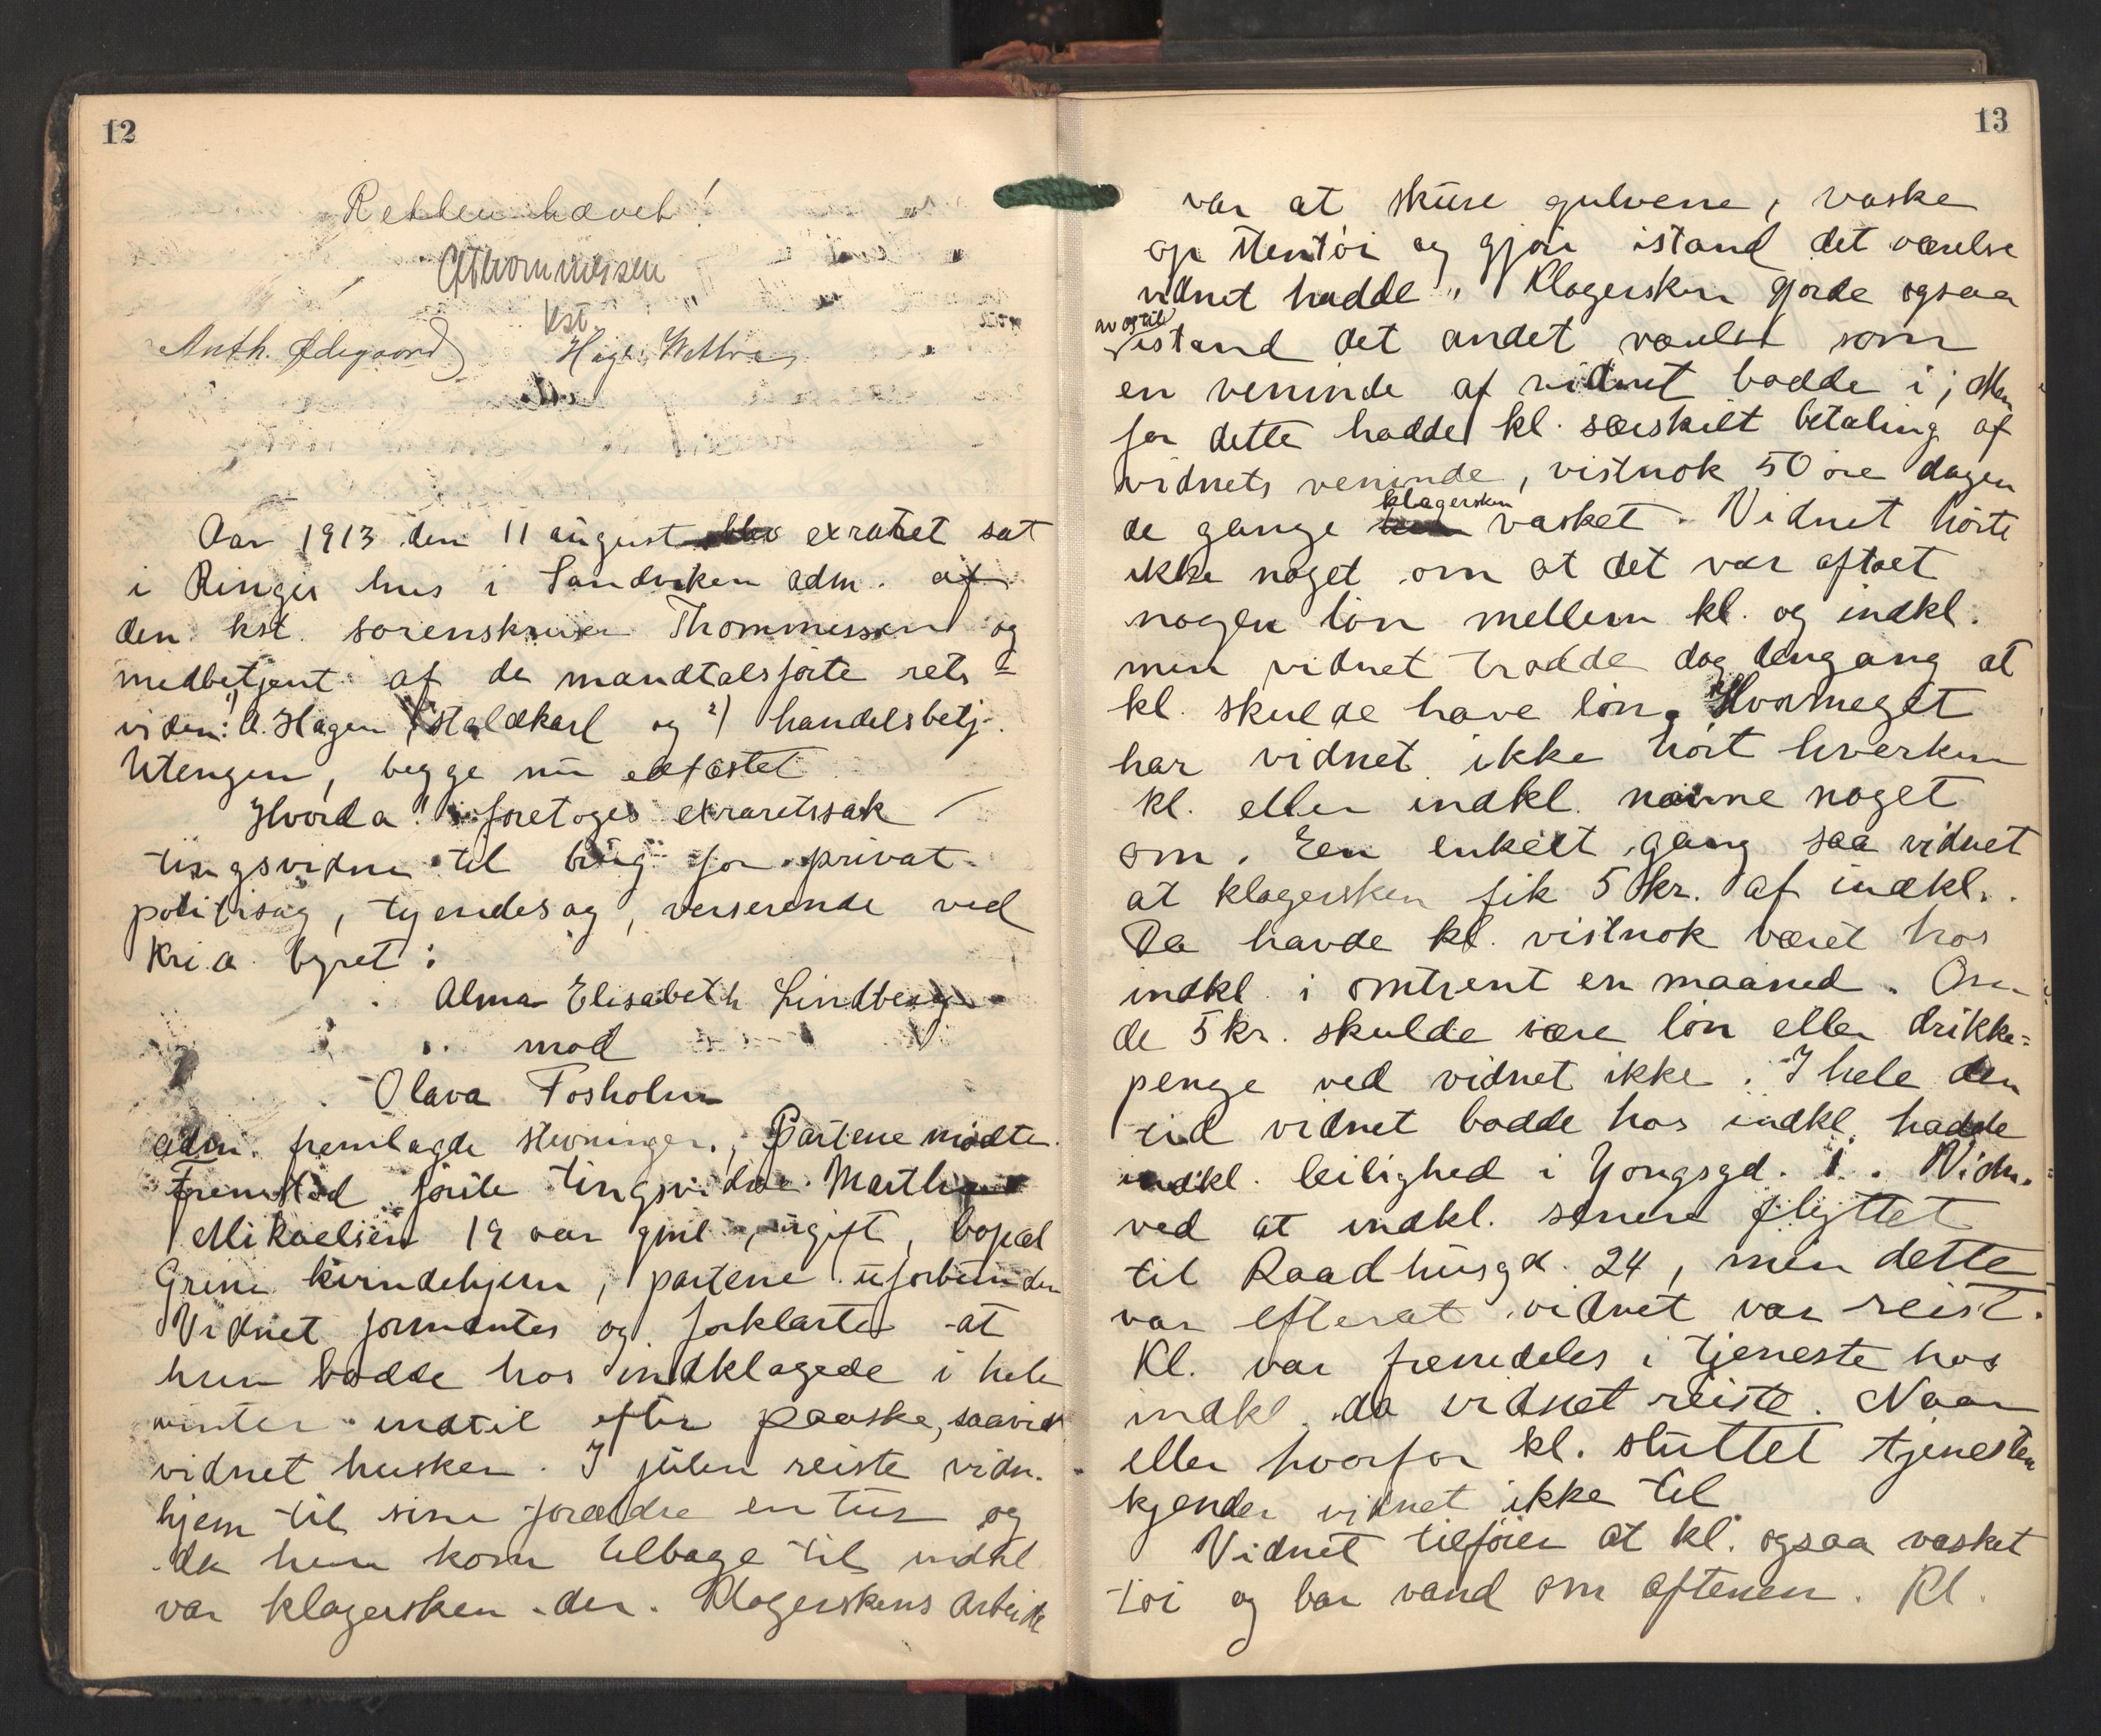 12
Retten hævet!
Thommessen
kst.
Anth. Ødegaard
Aar 1913 den 11 august blev exraret sat
i Ringis hus i Sandviken adm. af
den kst. sorenskriver Thommessen og
medbetjent af de mandtalsførte rets-
vidn: 1) A. Hagen Staldkarl og 2) handelsbetj.
Utengen, begge nu edfæstet
Hvorda! foretoges exraretssak
tingsvidne til brug for privat
politisag, tyendesag, verserende ved
Kr.i.a. byret:
Alma Elisabeth Lindberg
mod
Olava Fosholm
Adm. fremlagde stevningen. Partene mødte.
Fremstod første tingsvidne Martha
Mikaelsen 19 aar gml, ugift, bopæl
Grini kvindehjem, partene uforbunden
Vidnet formantes og forklarte at
hun bodde hos indklagede i hele
vinter indtil efter paaske, saavidt
vidnet husker. I julen reiste vidn.
hjem til sine forældre en tur og
da hun kom tilbage til indkl
var klagersken der. Klagerskens arbeide
13
var at skure gulvene, vaske
op stentøi og gjøre istand det værelse
vidnet hadde. Klagersken gjorde ogsaa
av og til
istand det andet værelse som
en veninde af vidnet bodde i; Men
for dette hadde kl. særskilt betaling af
vidnets veninde, vistnok 50 øre dagen
klagersken
de gange hun vasket. Vidnet hørte
ikke noget om at det var aftalt
nogen løn mellem kl. og indkl.
men vidnet trodde dog dengang at
kl. skulde have løn. Hvormeget
har vidnet ikke hørt hverken
kl. eller indkl. nævne noget
om. En enkelt gang saa vidnet
at klagersken fik 5 kr. af indkl.
Da havde kl. vistnok været hos
indkl. i omtrent en maaned. Om
de 5 kr. skulde være løn eller drikke-
penge ved vidnet ikke. I hele den
tid vidnet bodde hos indkl. hadde
indkl. leilighed i Yongsgd. 1. Vidn.
ved at indkl. senere flyttet
til Raadhusgd. 24, men dette
var efterat vidnet var reist.
Kl. var fremdeles i tjeneste hos
indkl. da vidnet reiste. Naar
eller hvorfor kl. sluttet tjenesten
kjender vidnet ikke til
Vidnet tilføier at kl. ogsaa vasket
tøi og bar vand om aftenen. Kl.